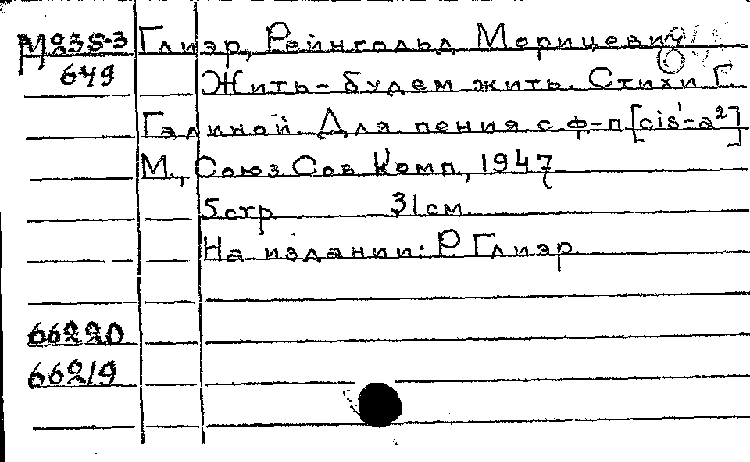 М235-3 Глиэр, Рейнгольд Морицевич
649 Жить-будем жить. Стихи Г.
Галиной. Для пения с ф-п [cis'-a²]
М., Союз Сов Комп, 1947
5 стр 31 см
На издании: Р Глиэр
66220
66219